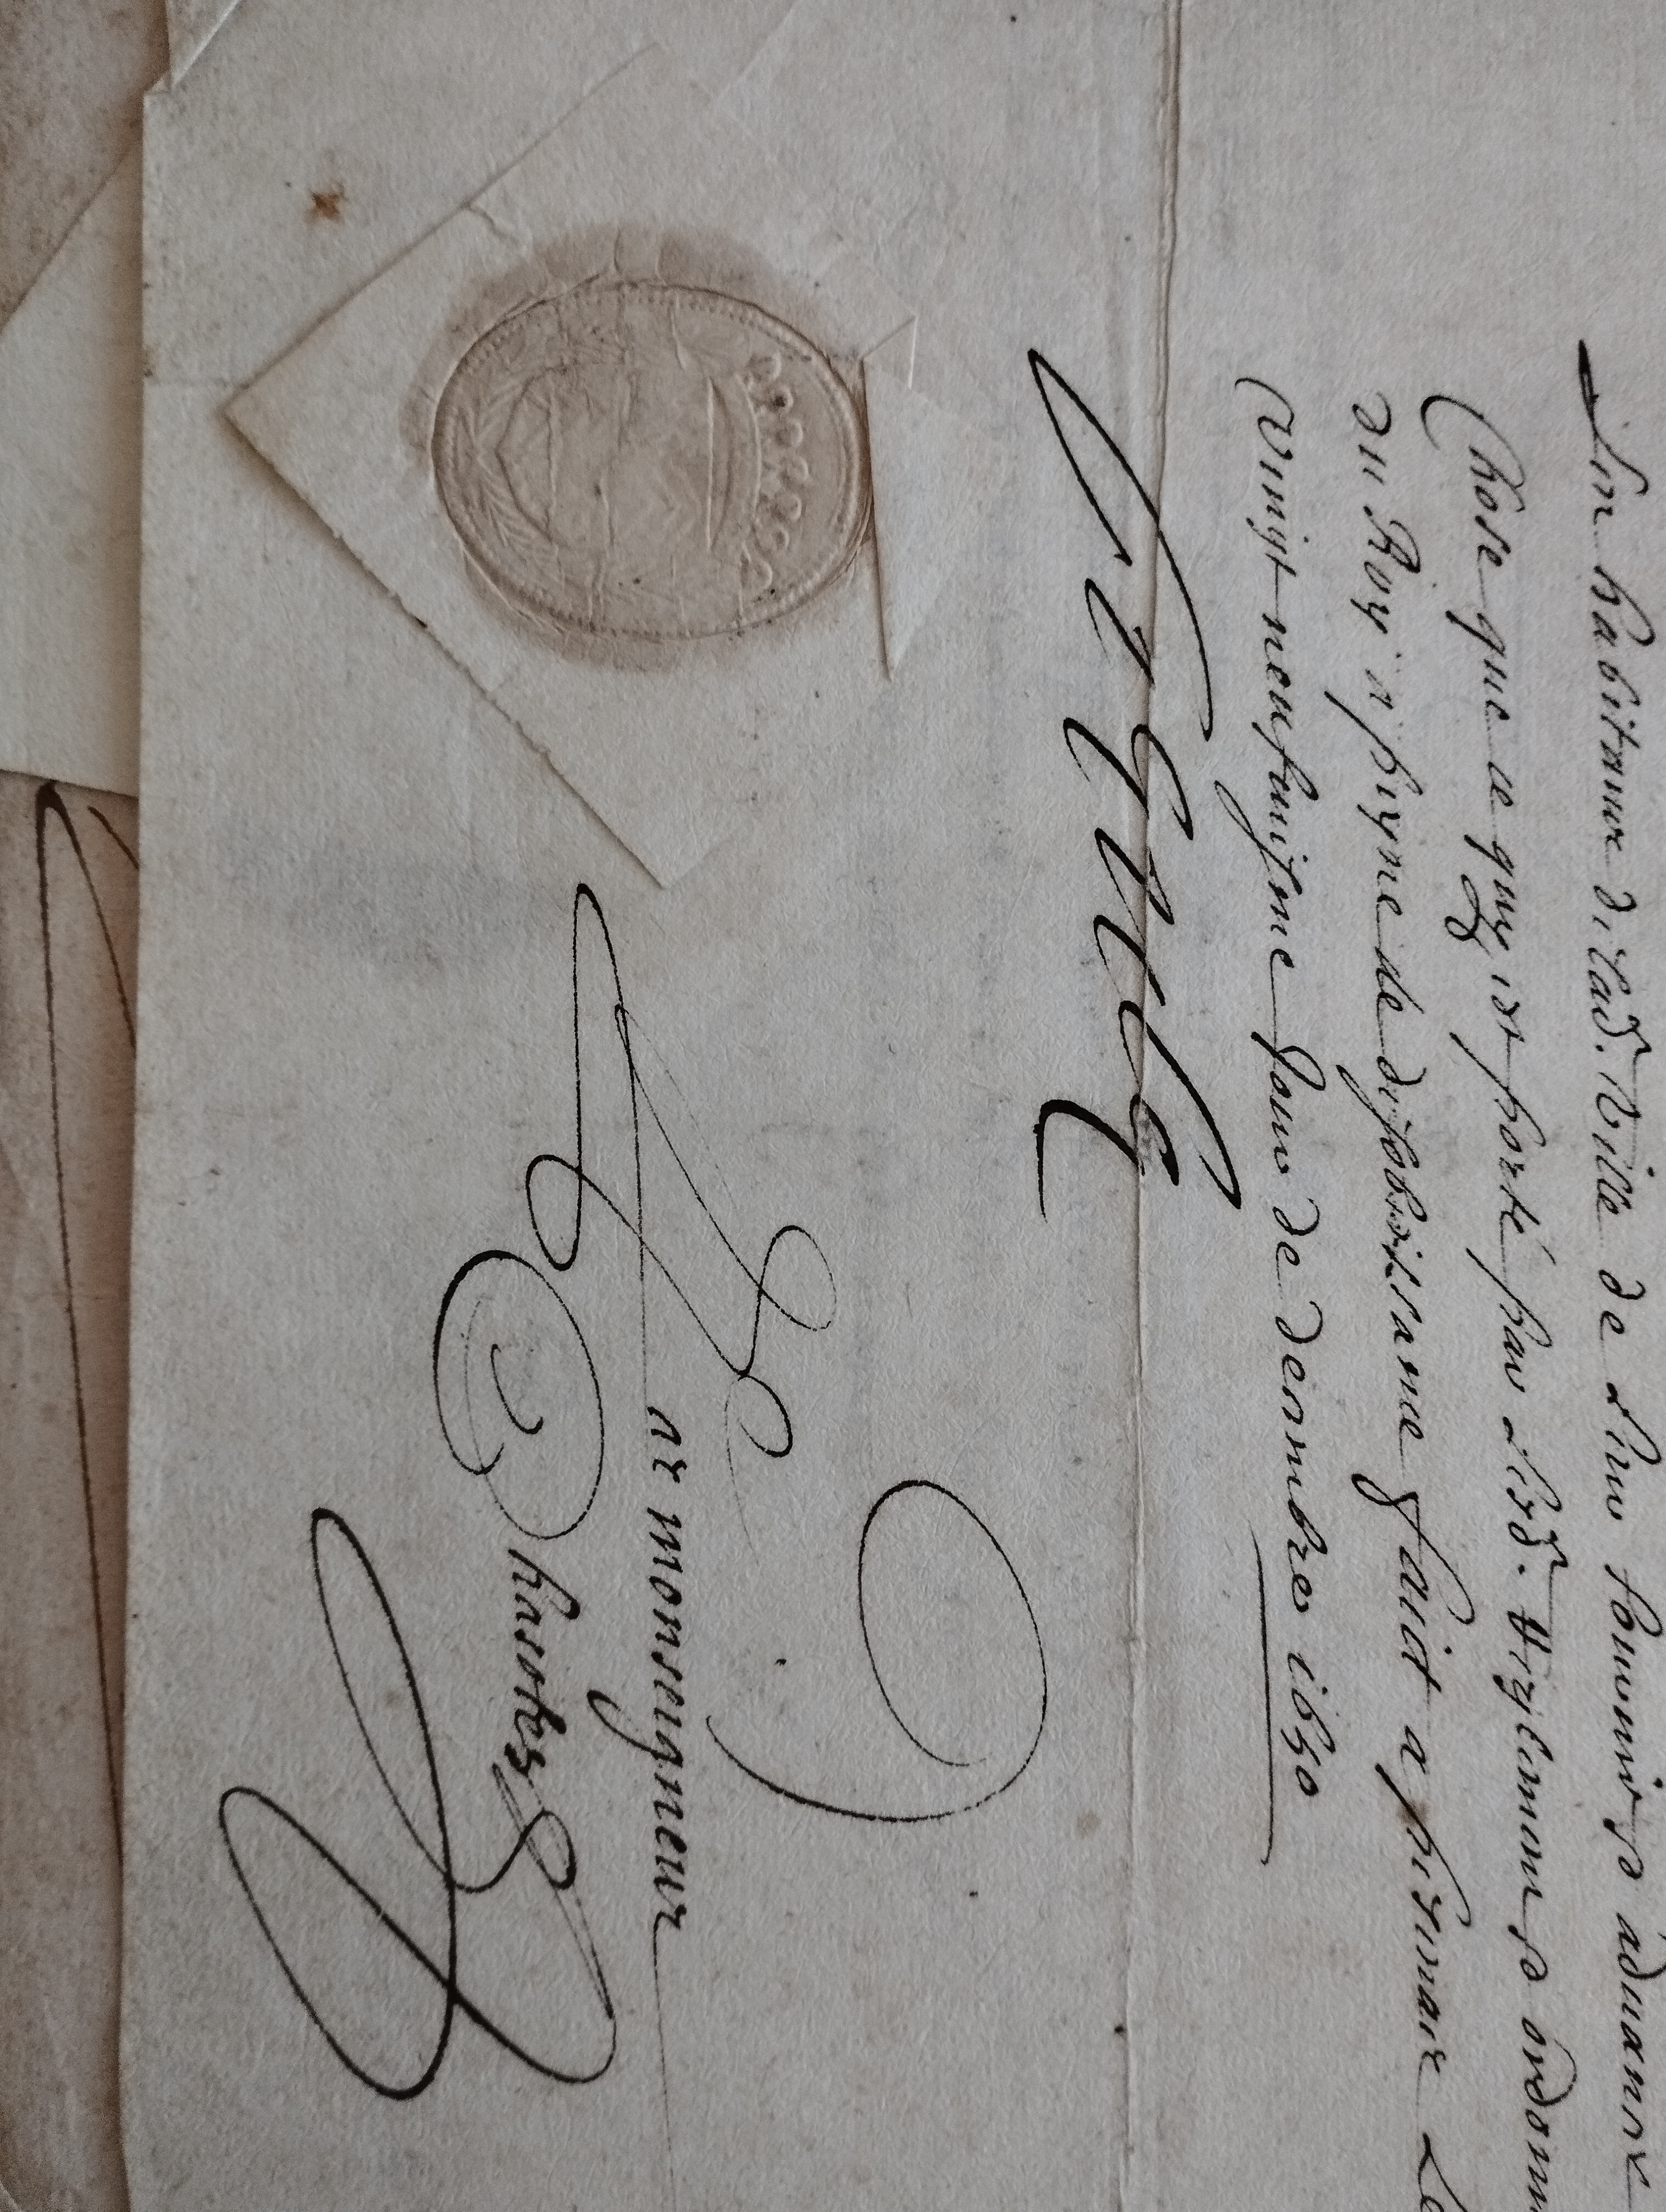 Les habitans de lad. Ville de Leur fournir advance
Chose que ce quy est porté par Lesd. Reglemens ordonn
du Roy a peyne de desobeissance faict a Le
vingt neufuiesme Jour de decembre 1650
Par monseigneur